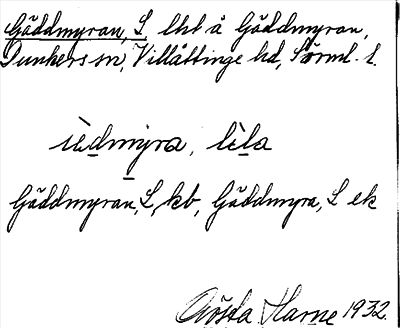 Gäddmyran, L lht å Gäddmyran,
Dunkers sn, Villåttinge hd, Sörml. l.
i̇̀e̲dmy̲ra, lèl̲a
Gäddmyran, L kb, Gäddmyra, L ek
Gösta Harne 1932.